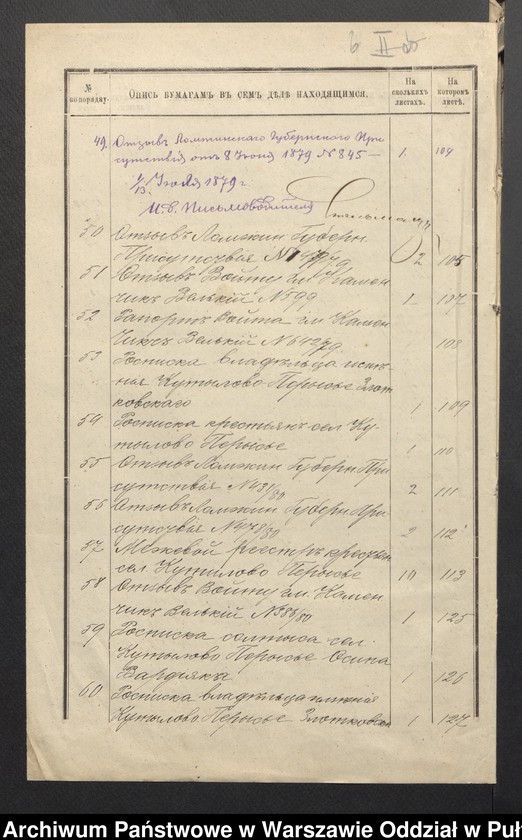 6 II
№ по порядку.
Опись бумагамъ въ семъ дѣлѣ находящимся.
На сколькихъ листахъ.
На которомъ листѣ.
49. Отзывъ Ломжинскаго Губернскаго При-
сутствія отъ 8 Іюня 1879 № 845— 1. 104
1/13 Іюля 1879 г.
И. д. Письмоводителя
50 Отзывъ Ломжин Губерн
Присутствія № 2 105
51 Отзывъ Войту гм. Камен
чикъ Велькій № 599 1 107
52 Рапортъ Войта гм. Камен
чикъ Велькій № 642/79 108
53 Росписка владѣльца имѣ-
нія Кутылово Перысье Злот
ковскаго 1 109
54 Росписка крестьянъ сел. Ку-
тылово Перысье 1 110
55 Отзывъ Ломжин Губерн При
сутствія № 31/80 2 111
56 Отзывъ Ломжин Губерн При
сутствія № 478/80 2 112
57 Межевой реестръ крестьян
сел Кутылово Перысье 10 113
58 Отзывъ Войту гм. Камен
чикъ Велькій № 83/80 1 125
59 Росписка солтыса сел.
Кутылово Перысье Осипа
1 126
60 Росписка владѣльца имѣнія
Кутылово Перысье Злотковск 1 127
Archiwum Państwowe w Warszawie Oddział w Puł